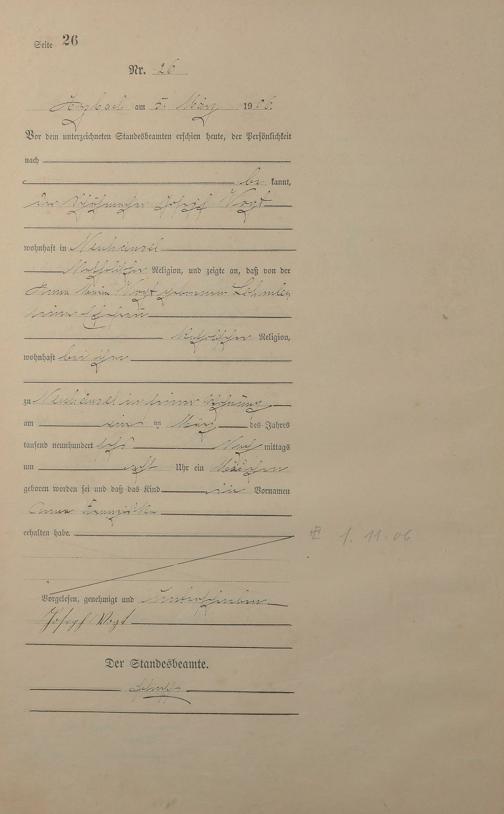 Seite 26
Nr. 26
am 5. März 1906.
Vor dem unterzeichneten Standesbeamten erschien heute, der Persönlichkeit
nach
be kannt,
der Joseph Vogt
wohnhaft in Neuhäusel
Religion, und zeigte an, daß von der
Anna Maria Vogt geborenen
seiner Ehefrau
Religion,
wohnhaft bei ihm
zu Neuhäusel in seiner Wohnung
am März des Jahres
tausend neunhundert sechs Nach mittags
um Uhr ein Mädchen
geboren worden sei und daß das Kind Vornamen
Anna Franziska
erhalten habe.
1. 11. 06
Vorgelesen, genehmigt und unterschrieben
Joseph Vogt
Der Standesbeamte.